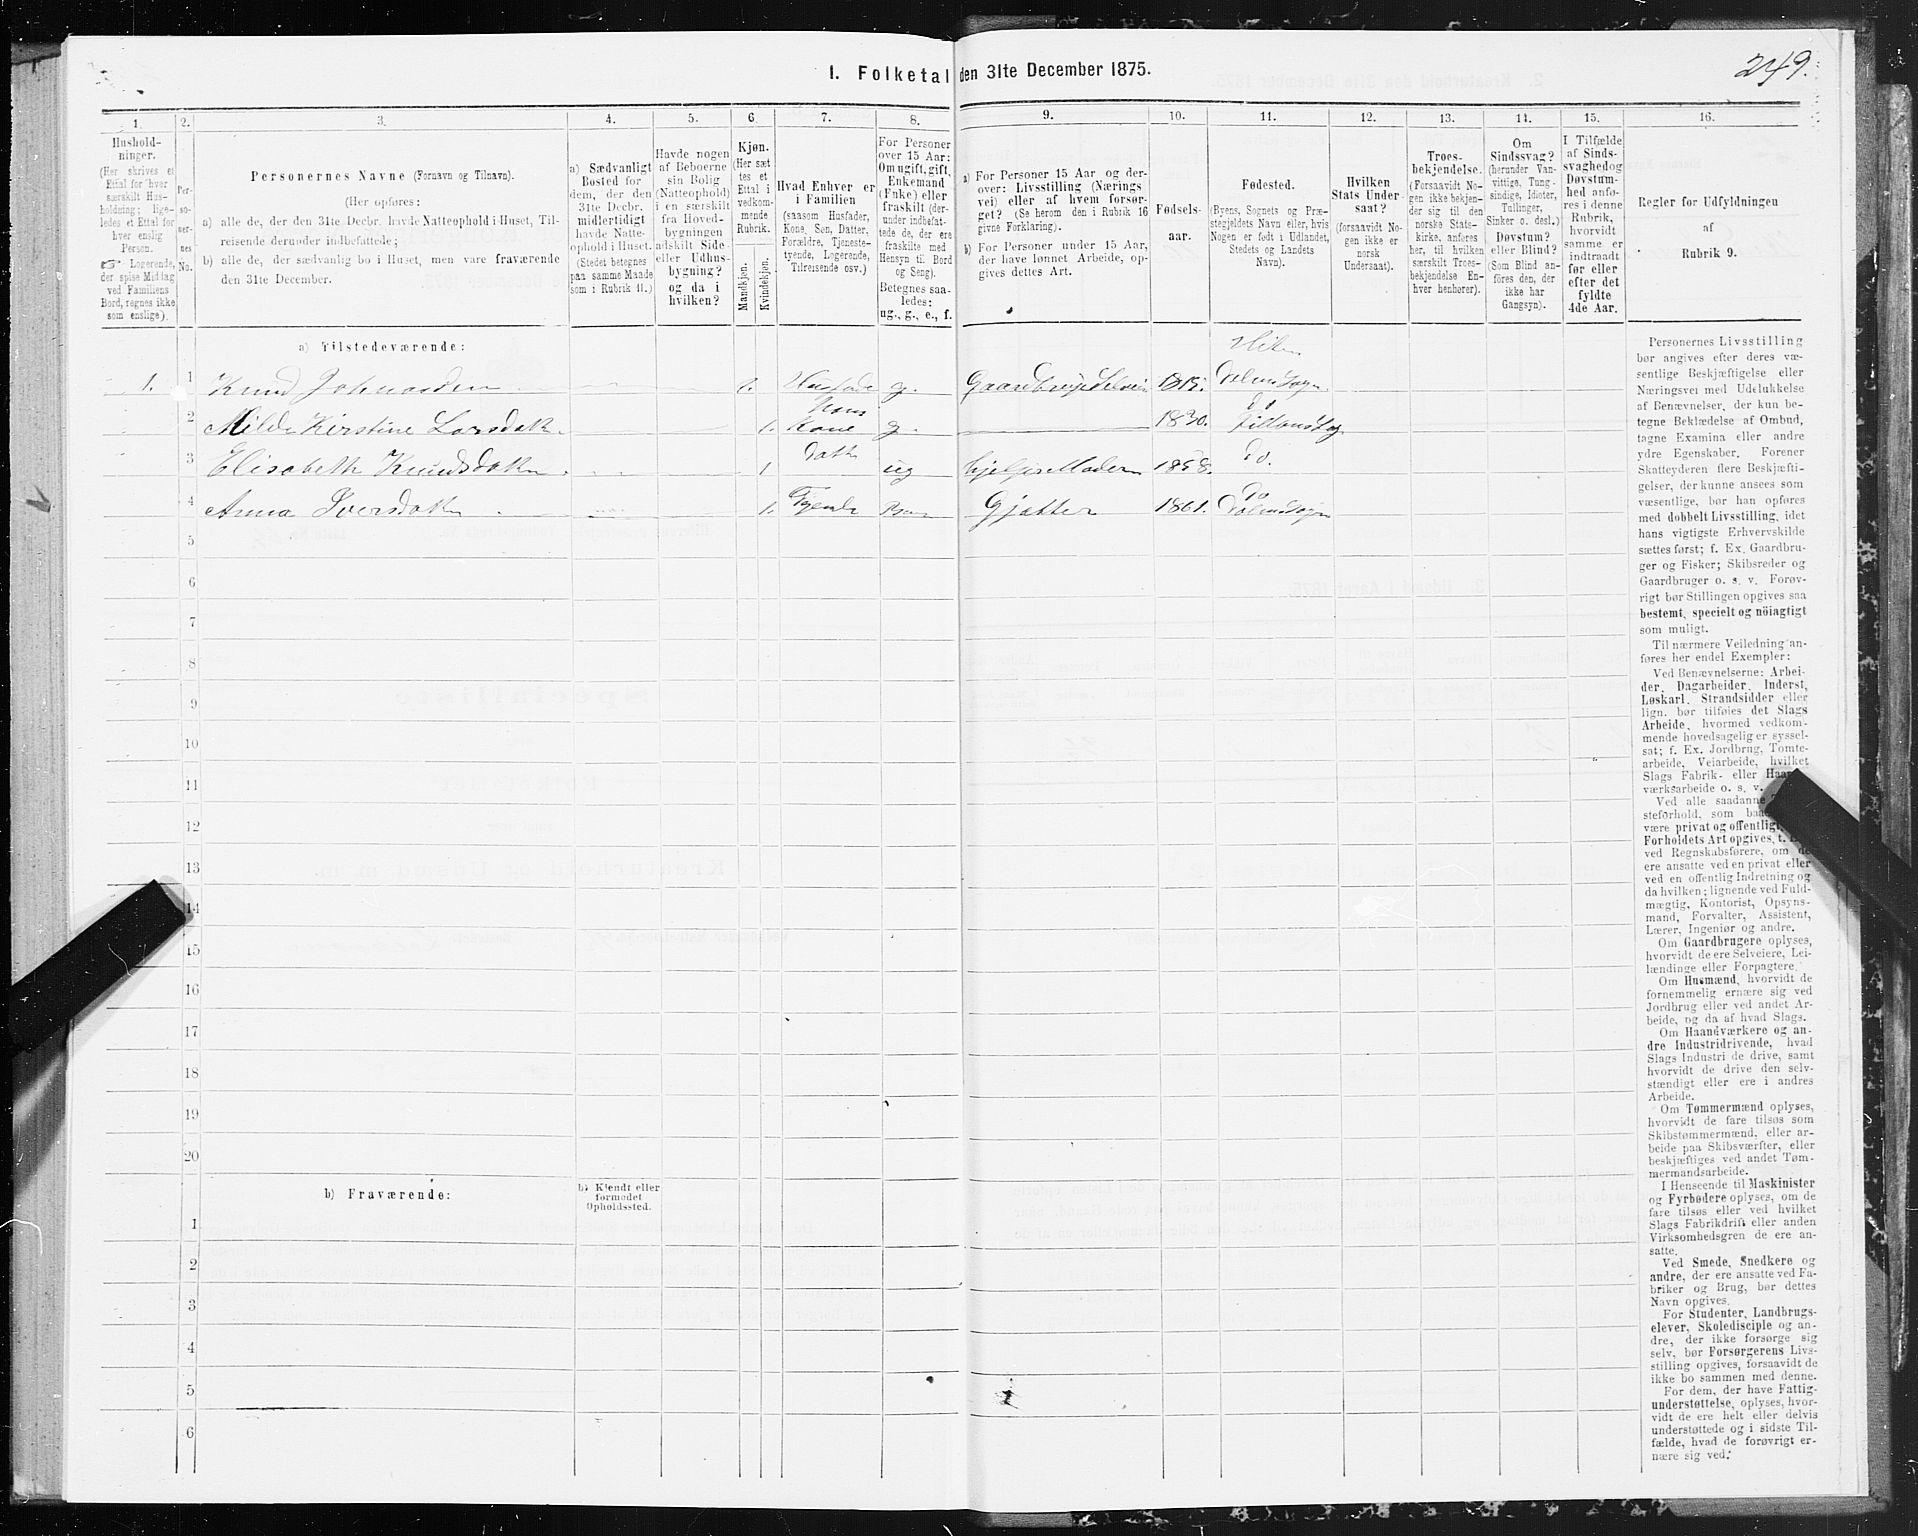 249.
1. Folketal den 31te December 1875.
1. 2. 3. 4. 5. 6. 7. 8. 9. 10. 11. 12. 13. 14. 15. 16.
Husholdninger.
(Her skrives et
Ettal for hver
særskilt Husholdning; ligeledes
et Ettal for
hver enslig
Person.
Logerende,
der spise Middag
ved Familiens
Bord, regnes ikke
som enslige).
Personernes
No.
Personernes Navne (Fornavn og Tilnavn).
(Her opføres:
a) alle de, der den 31te Decbr. havde Natteophold i Huset, Tilreisende
derunder indbefattede;
b) alle de, der sædvanlig bo i Huset, men vare fraværende
den 31te December.
a) Sædvanligt
Bosted for
dem, der den
31te Decbr.
midlertidigt
havde Natteophold
i Huset.
(Stedet betegnes
paa samme Maade
som i Rubrik 11.)
Havde nogen
af Beboerne
sin Bolig
(Natteophold)
i en særskilt
fra Hovedbygningen
adskilt Side-
eller Udhusbygning?
og da i
hvilken?
Kjøn.
(Her sættes
et
Ettal i
vedkommende
Rubrik.
Mandkjøn.
Kvindekjøn.
Hvad Enhver er
i Familien
(saasom Husfader,
Kone, Søn, Datter,
Forældre, Tjenestetyende,
Logerende,
Tilreisende osv.)
For Personer
over 15 Aar:
Om ugift, gift,
Enkemand
(Enke) eller
fraskilt (derunder
indbefattede
de, der ere
fraskilte med
Hensyn til Bord
og Seng).
Betegnes saaledes:
ug., g., e., f.
a) For Personer 15 Aar og derover:
Livsstilling (Næringsvei)
eller af hvem forsørget?
(Se herom den i Rubrik 16
givne Forklaring).
b) For Personer under 15 Aar,
der have lønnet Arbeide, opgives
dettes Art.
Fødselsaar.
Fødested.
(Byens, Sognets og Præstegjeldets
Navn eller, hvis
Nogen er født i Udlandet,
Stedets og Landets
Navn).
Hvilken
Stats Undersaat?
(forsaavidt Nogen
ikke er
norsk
Undersaat).
Troesbekjendelse.
(Forsaavidt Nogen
ikke bekjender
sig til den
norske Statskirke,
anføres
her, til hvilken
særskilt Troesbekjendelse
Enhver
henhører).
Om
Sindssvag?
(herunder Vanvittige,
Tungsindige,
Idioter,
Tullinger,
Sinker o. desl.)
Døvstum?
eller Blind?
(Som Blind anføres
den, der
ikke har
Gangsyn).
I Tilfælde
af Sindssvaghed
og
Døvstumhed
anføres
i denne
Rubrik,
hvorvidt
samme er
indtraadt
før eller
efter det
fyldte
4de Aar.
Regler for Udfyldningen
af
Rubrik 9.
a) Tilstedeværende:
1. 1 Knud g. 1815.
2 Kirstine Larsdatr 1. Kone g. 1830. do
3 Elisabeth Knudsdatr 1 Datter ug 1858. do.
4 Anna Iversdatr 1. Tyende Gjætter 1861. do
5
6
7
8
9
10
11
12
13
14
15
16
17
18
19
20
b) Fraværende:
b) Kjendt eller
formodet
Opholdssted.
1
2
3
4
5
6
Personernes Livsstilling
bør angives efter deres væsentlige
Beskjæftigelse eller
Næringsvei med Udelukkelse
af Benævnelser, der kun betegne
Beklædelse af Ombud,
tagne Examina eller andre
ydre Egenskaber. Forener
Skatteyderen flere Beskjæftigelser,
der kunne ansees som
væsentlige, bør han opføres
med dobbelt Livsstilling, idet
hans vigtigste Erhvervskilde
sættes først; f. Ex. Gaardbruger
og Fisker; Skibsreder og
Gaardbruger o. s. v. Forøvrigt
bør Stillingen opgives saa
bestemt, specielt og nöiagtigt
som muligt.
Til nærmere Veiledning anføres
her endel Exempler:
Ved Benævnelserne: Arbeider,
Dagarbeider, Inderst,
Løskarl, Strandsidder eller
lign. bør tilføies det Slags
Arbeide, hvormed vedkommende
hovedsagelig er sysselsat;
f. Ex. Jordbrug, Tomtearbeide,
Veiarbeide, hvilket
Slags Fabrik- eller
værksarbeide o. s. v.
Ved alle saadanne
som
være privat og offentligt,
Forholdets Art opgives,
ved Regnskabsførere, om de
ere ansatte ved en privat eller
ved en offentlig Indretning og
da hvilken; lignende ved Fuldmægtig,
Kontorist, Opsynsmand,
Forvalter, Assistent,
Lærer, Ingeniør og andre.
Om Gaardbrugere oplyses,
hvorvidt de ere Selveiere, Leilændinge
eller Forpagtere.
Om Husmænd, hvorvidt de
fornemmelig ernære sig ved
Jordbrug eller ved andet Arbeide,
og da af hvad Slags.
Om Haandværkere og andre
Industridrivende, hvad
Slags Industri de drive, samt
hvorvidt de drive den selvstændigt
eller ere i andres
Arbeide.
Om Tømmermænd oplyses,
hvorvidt de fare tilsøs som
Skibstømmermænd, eller arbeide
paa Skibsværfter, eller
beskjæftiges ved andet Tømmermandsarbeide.
I Henseende til Maskinister
og Fyrbødere oplyses, om de
fare tilsøs eller ved hvilket
Slags Fabrikdrift eller anden
Virksomhedsgren de ere ansatte.
Ved Smede, Snedkere og
andre, der ere ansatte ved Fabriker
og Brug, bør dettes
Navn opgives.
For Studenter, Landbrugselever,
Skoledisciple og andre,
der ikke forsørge sig
selv, bør Forsørgerens Livsstilling
opgives, forsaavidt de
ikke bo sammen med denne.
For dem, der have Fattigunderstøttelse,
oplyses, hvorvidt
de ere helt eller delvis
understøttede og i sidste Tilfælde,
hvad de forøvrigt ernære
sig ved.